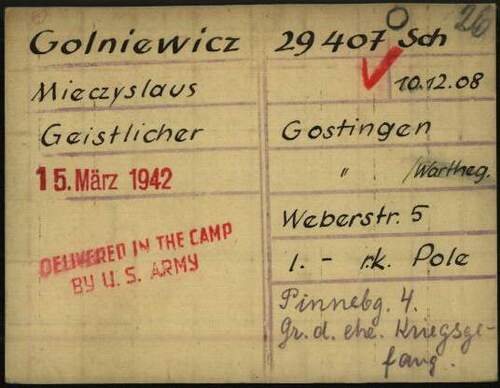 Golniewicz 29 407 Sch
26
Mieczyslaus 10.12.08
Geistlicher Gostingen
15. März 1942 " /Wartheg.
Weberstr. 5
DELIVERED IN THE CAMP
BY U. S. ARMY
1. - rk. Pole
Pinnebg. 4.
Gr. d. ehe. Kriegsge-
fang.